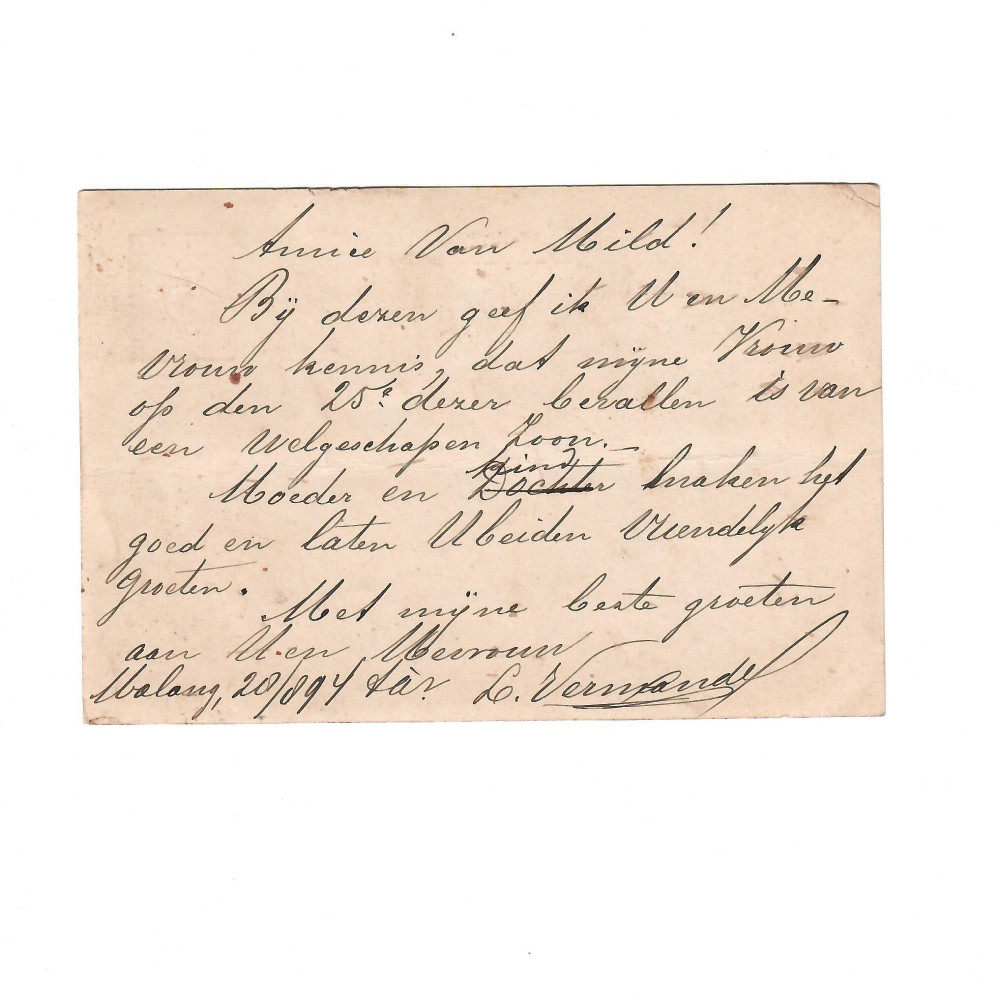 Amice Van Mild!
Bij dezen geef ik U en Me-
vrouw kennis, dat mijne Vrouw
op den 25e dezer bevallen is van
een Welgeschapen Zoon.
Moeder en Kind Dochter maken het
goed en laten U beiden Vriendelijk
groeten.
Met mijne beste groeten
aan U en Mevrouw
Malang, 28/894 L. Vermande